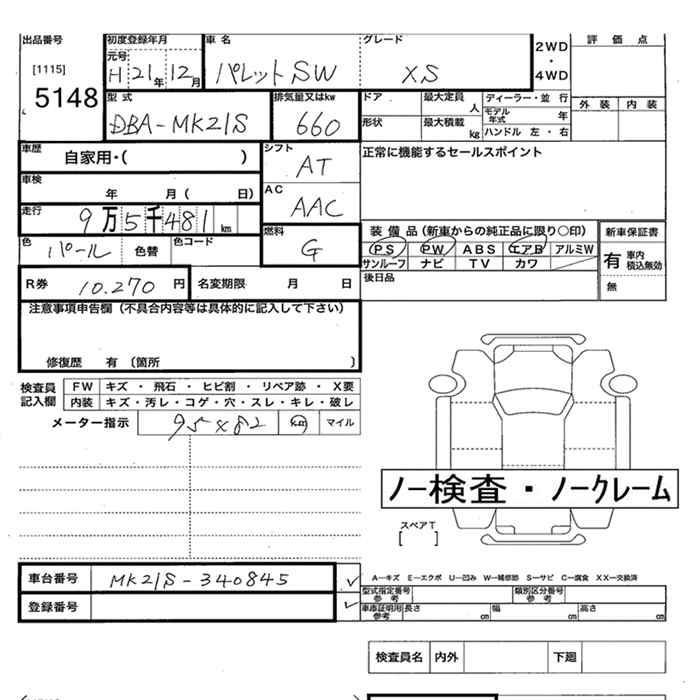 出品番号 初度登録年月 車名 グレード 2WD・4WD 評価点
[1115] 元号 H 21年 12月 パレットSW XS
5148 型式 排気量又はkw ドア 最大定員 人 ディーラー・並行 外装 内装
DBA-MK21S 660 形状 最大積載 kg モデル年式 年
ハンドル 左・右
車歴 自家用・( ) シフト AT 正常に機能するセールスポイント
車検 年 月( 日) AC AAC
走行 9万5千481 km 燃料 G 装備品(新車からの純正品に限り○印) 新車保証書
色 パール 色替 色コード PS PW ABS エアB アルミW 有 車内積込無効
サンルーフ ナビ TV カワ 無
R券 10.270 円 名変期限 月 日 後日品
注意事項申告欄(不具合内容等は具体的に記入して下さい)
修復歴 有(箇所 )
検査員記入欄 FW キズ・飛石・ヒビ割・リペア跡・X要
内装 キズ・汚レ・コゲ・穴・スレ・キレ・破レ
メーター指示 km マイル
ノー検査・ノークレーム
スペアT
[ ]
車台番号 MK21S-340845 ✓ A―キズ E―エクボ U―凹み W―補修跡 S―サビ C―腐食 XX―交換済
型式指定番号 参考 類別区分番号 参考
登録番号 ✓ 車庫証明用 参考 長さ cm 幅 cm 高さ cm
検査員名 内外 下廻